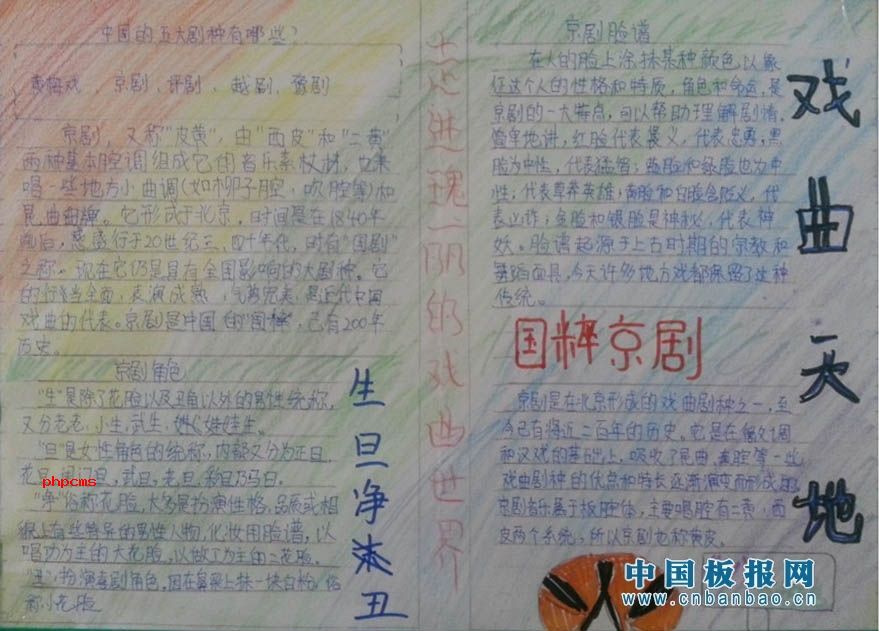 中国的五大剧种有哪些？
黄梅戏、京剧、评剧、越剧、豫剧
京剧，又称"皮黄"，由"西皮"和"二黄"
两种基本腔调组成它的音乐素材，也兼
唱一些地方小曲调(如柳子腔，吹腔等)和
昆曲曲牌。它形成于北京，时间是在1840年
前后，盛行于20世纪三、四十年代，时有"国剧"
之称。现在它仍是具有全国影响的大剧种。它
的行当全面、表演成熟、气势完美，是近代中国
戏曲的代表。京剧是中国的"国粹"，已有200年
历史。
京剧角色
"生"是除了花脸以及丑角以外的男性统称，
又分老老，小生，武生，娃娃生。
"旦"是女性角色的统称，内部又分为正旦，
花旦，武旦，老旦
"净"俗称花脸，大多是扮演性格，品质或相
貌上有些特异的男性人物，化妆用脸谱，以
唱功为主的大花脸，以做工为主的二花脸。
"丑"扮演喜剧角色，因在鼻梁上抹一块白粉，俗
称小花脸
phpcms
生旦净末丑
走进瑰丽的戏曲世界
京剧脸谱
在人的脸上涂抹某种颜色以象
征这个人的性格和特质，角色和命运，是
京剧的一大特点，可以帮助理解剧情。
简单地讲，红脸代表义，代表忠勇；黑
脸为中性，代表猛智；蓝脸和绿脸也为中
性，代表草莽英雄；黄脸和白脸含贬义，代
表凶诈；金脸和银脸是神秘，代表神
妖。脸谱起源于上古时期的宗教和
舞蹈面具，今天许多地方戏都保留了这种
传统。
国粹京剧
京剧是在北京形成的戏曲剧种之一，至
今已有将近二百年的历史。它是在徽调
和汉戏的基础上，吸收了昆曲，秦腔等一些
戏曲剧种的优点和特长逐渐演变而形成的。
京剧音乐属于板腔体，主要唱腔有二黄，西
皮两个系统，所以京剧也称黄皮。
戏曲天地
中国板报网
www.cnbanbao.cn